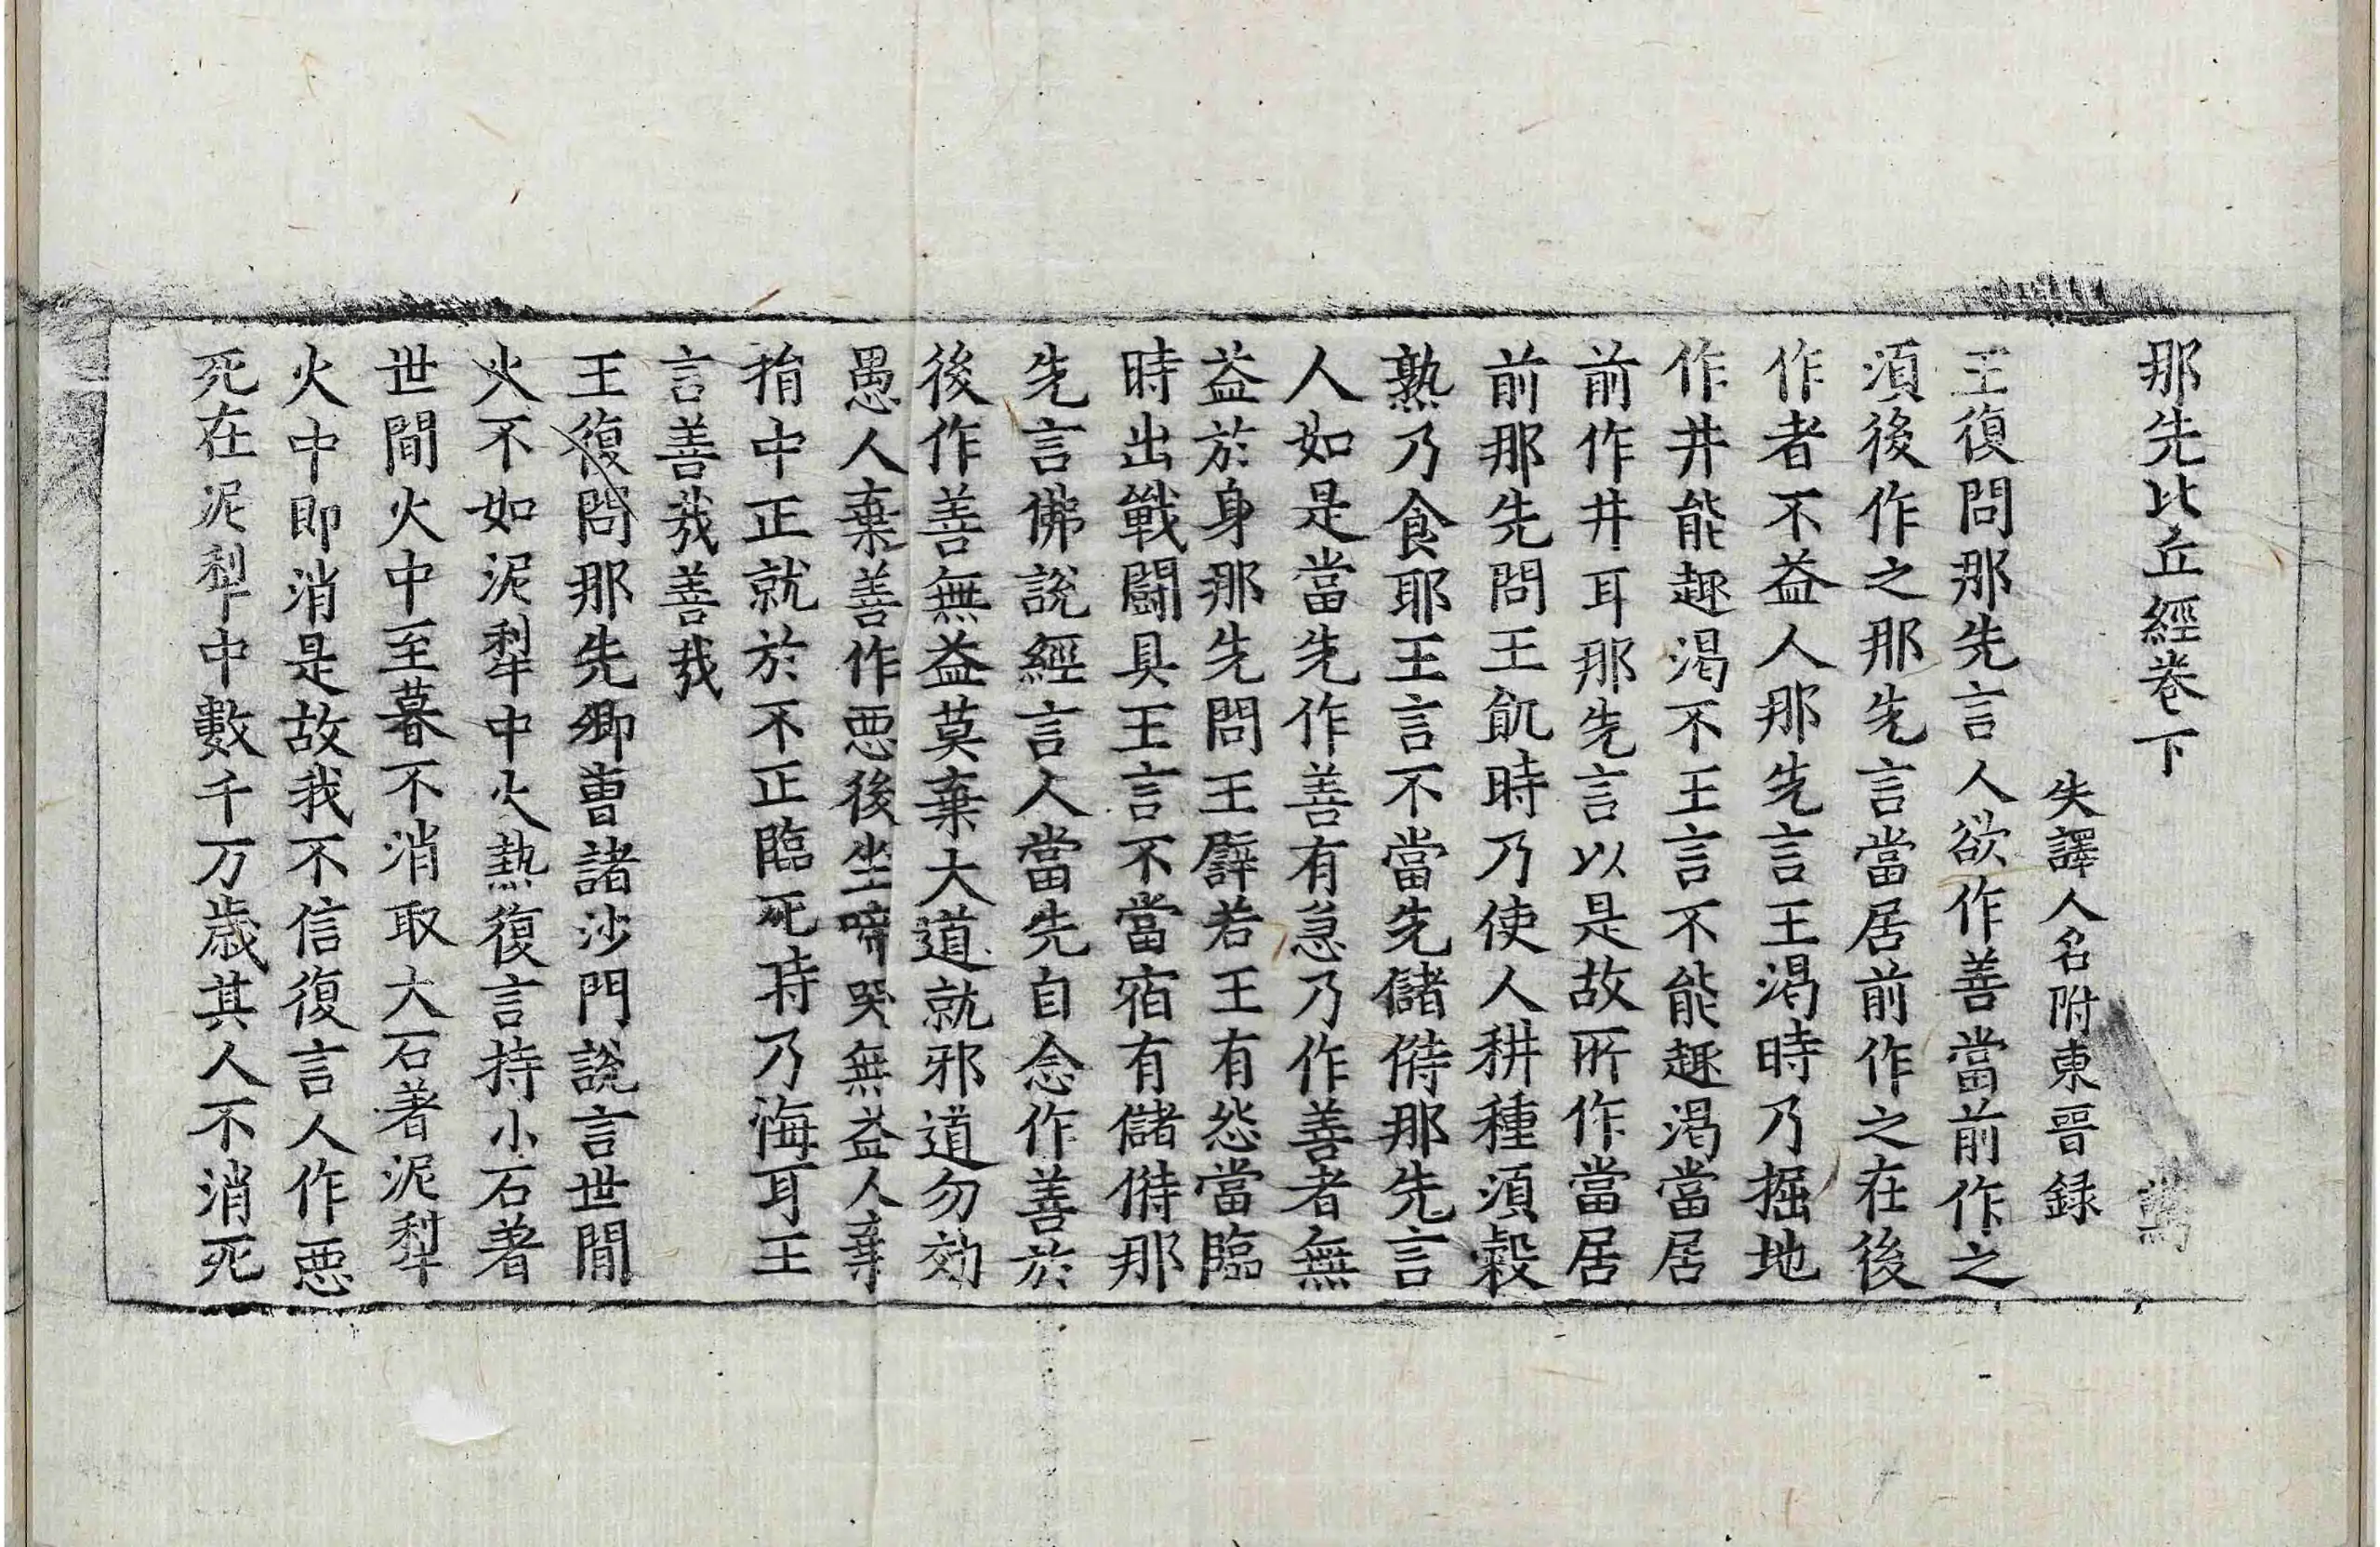 那先比丘經卷下
失譯人名附東晉録
王復問那先言人欲作善當前作之
湏後作之那先言當居前作之在後
作者不益人那先言王渴時乃掘地
作井能趣渴不王言不能趣渴當居
前作井耳那先言以是故所作當居
前那先問王飢時乃使人耕種湏糓
熟乃食耶王言不當先儲偫那先言
人如是當先作善有急乃作善者無
益於身那先問王譬若王有怨當臨
時出戰鬪具王言不當宿有儲偫那
先言佛說經言人當先自念作善於
後作善無益莫棄大道就邪道勿効
愚人棄善作惡後坐啼哭無益人棄
捐中正就於不正臨死時乃悔耳王
言善㢤善㢤
王復問那先卿曹諸沙門說言世間
火不如泥犁中火熱復言持小石著
世間火中至暮不消取大石著泥犁
火中即消是故我不信復言人作惡
死在泥犁中數千万歲其人不消死